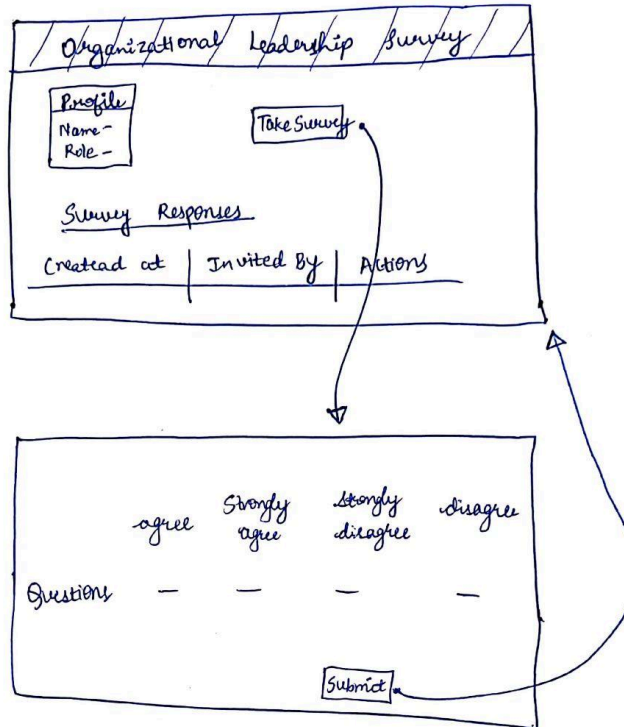 Organizational Leadership Survey
Profile
Name -
Role -
Take Survey
Survey Responses
Createad at Invited By Actions
agree Strongly agree Stongly disagree disagree
Questions — — — —
Submit